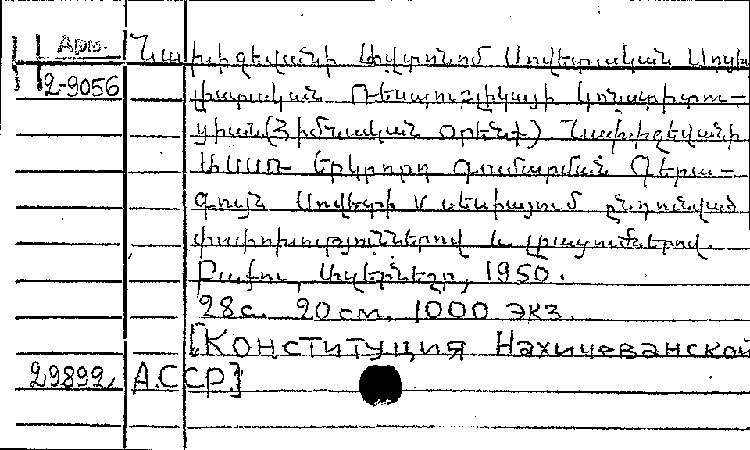 Арм. Նախիջևանի Ավտոնոմ Սովետական Սոցի
2-9056 լիստական Ռեսպուբլիկայի կոնստիտու-
ցիան (Հիմնական օրենք) Նախիջևանի
ԱՍՍՌ Երկրորդ գումարման Գերա-
գույն Սովետի V սեսիայում ընդունված
փոփոխություններով և լրացումներով.
Բաքու, Ազերնեշր, 1950.
28с. 20см. 1000 экз.
[Конституция Нахичеванской
29892. АССР]